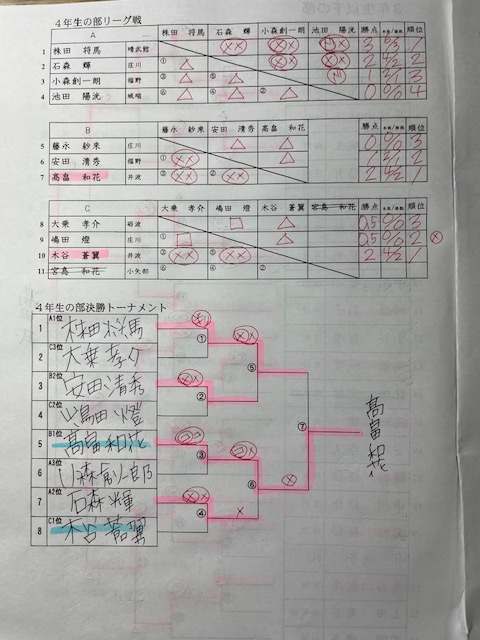 4年生の部リーグ戦
A 株田 将馬 石森 輝 小森創一朗 池田 陽洸 勝点 本数/勝数 順位
1 株田 将馬 峰武館 3 1
2 石森 輝 庄川 ① △ 2 4/2 2
3 小森創一朗 福野 ③ △ ⑤ △ 1 3
4 池田 陽洸 城端 ⑥ △ ④ △ ② △ 0 0/0 4
B 藤永 紗来 安田 清秀 高畠 和花 勝点 本数/勝数 順位
5 藤永 紗来 庄川 △ △ 0 0/0 3
6 安田 清秀 福野 ① △ 1 2/1 2
7 高畠 和花 井波 ③ ② 2 4/2 1
C 大乗 孝介 嶋田 燈 木谷 蒼翼 宮島 和花 勝点 本数/勝数 順位
8 大乗 孝介 砺波 □ △ 0.5 0/0 3
9 嶋田 燈 庄川 ① □ △ 0.5 0/0 2
10 木谷 蒼翼 井波 ③ ⑤ 2 4/2 1
11 宮島 和花 小矢部 ⑥ ④ ②
4年生の部決勝トーナメント
1 A1位 株田将馬
2 C3位 大乗孝介 ①
3 B2位 安田清秀 ⑤
4 C2位 嶋田燈 ②
⑦ 高畠和花
5 B1位 高畠和花
6 A3位 小森創一郎 ③
7 A2位 石森輝 ⑥
8 C1位 木谷蒼翼 ④